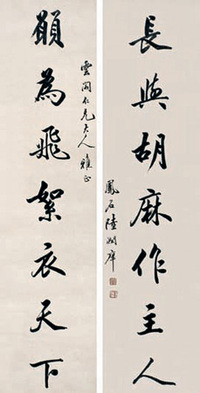 長與胡麻作主人
鳳石陸潤庠
雲閣仁兄大人雅正
願為飛絮衣天下